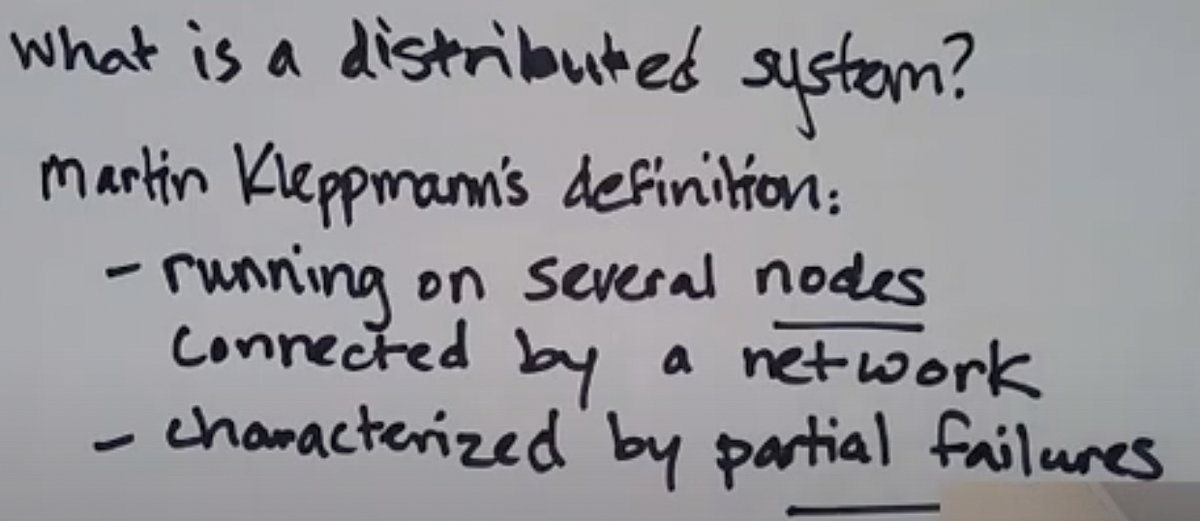 What is a distributed system?
Martin Kleppmann's definition:
- running on several nodes
connected by a network
- characterized by partial failures